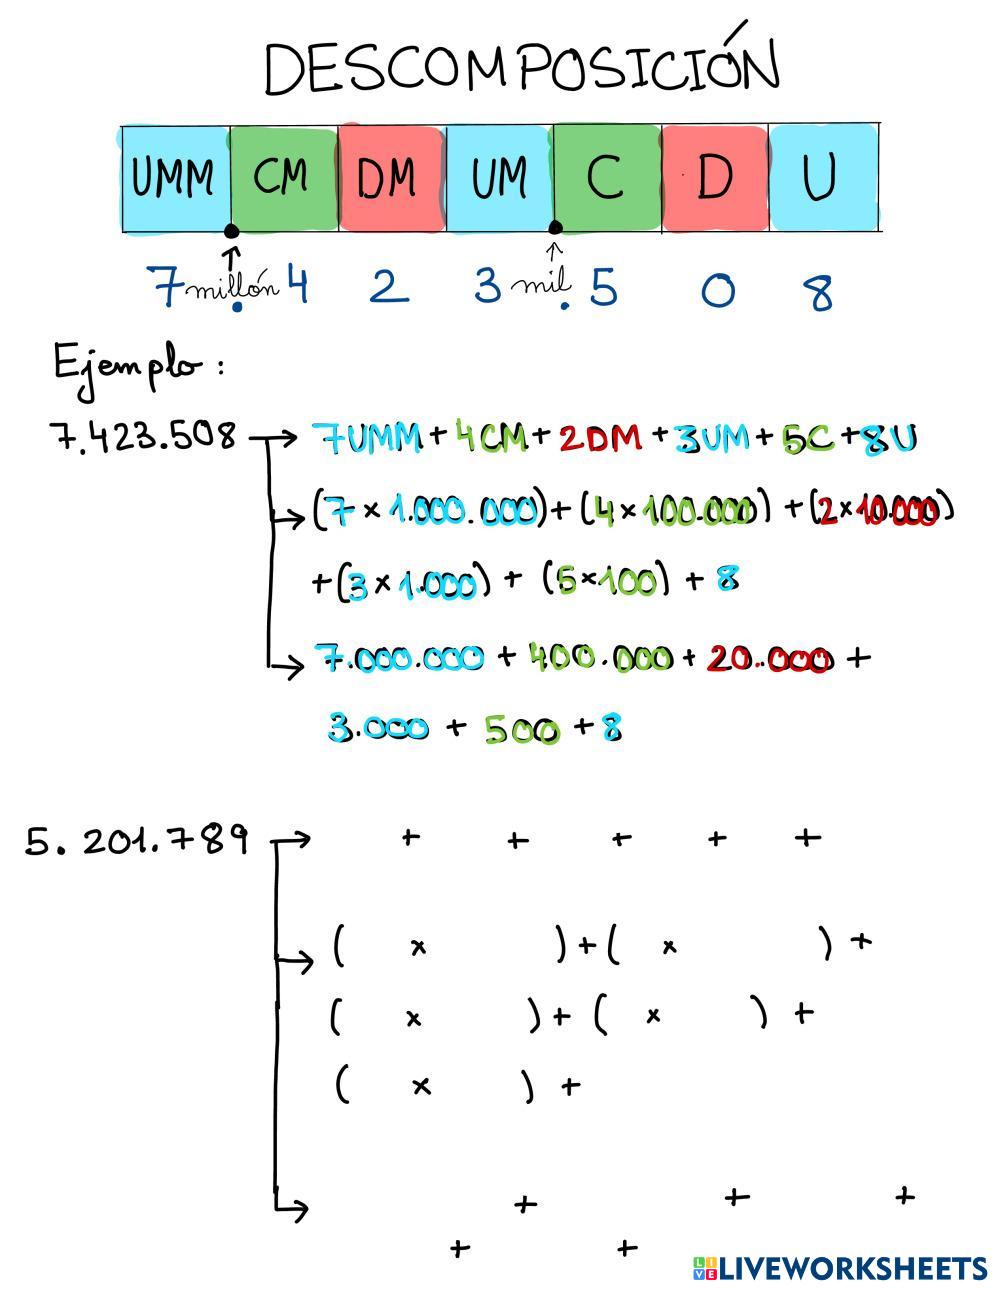 DESCOMPOSICIÓN
UMM CM DM UM C D U
7 millón . 4 2 3 mil . 5 0 8
Ejemplo :
7.423.508 → 7UMM + 4CM + 2DM + 3UM + 5C + 8U
→ (7 × 1.000.000) + (4 × 100.000) + (2 × 10.000)
+ (3 × 1.000) + (5 × 100) + 8
→ 7.000.000 + 400.000 + 20.000 +
3.000 + 500 + 8
5. 201.789 → + + + + +
→ ( × ) + ( × ) +
( × ) + ( × ) +
( × ) +
→ + + +
+ +
LIVE LIVEWORKSHEETS